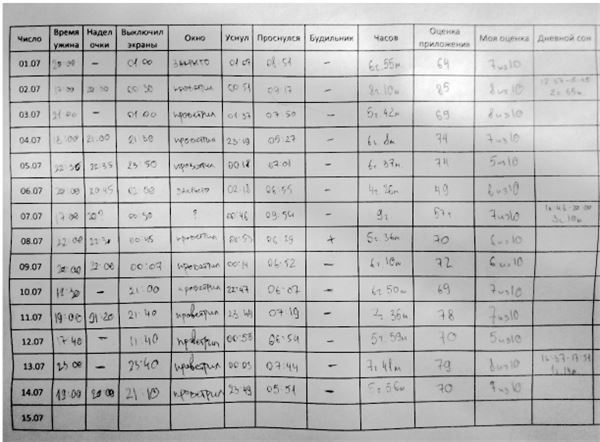 Число Время ужина Надел очки Выключил экраны Окно Уснул Проснулся Будильник Часов Оценка приложения Моя оценка Дневной сон
01.07 20:00 — 01:00 закрыто 01:07 08:51 — 6ч.55м. 64 7из10
02.07 17:00 00:30 проветрил 00:51 09:17 — 8ч.10м 85 8из10
03.07 21:00 — 01:00 проветрил 01:37 07:50 — 5ч.42м 69 8из10
04.07 18:00 21:00 21:30 проветрил 23:19 05:27 — 6ч.8м 74 7из10
05.07 22:30 22:35 23:50 проветрил 00:18 07:01 — 6ч.37м. 74 5из10
06.07 20:00 20:45 02:00 закрыто 02:18 06:55 — 4ч.26м 49 6из10
07.07 17:00 20? 00:30 ? 00:46 09:54 — 9ч 7из10
08.07 22:00 22:30 00:45 проветрил 00:53 06:29 + 5ч.36м 70 6из10
09.07 20:00 22:00 00:07 проветрил 00:14 06:52 — 6ч.10м 72 6из10
10.07 — 21:00 проветрил 22:47 06:07 — 6ч.50м 69 7из10
11.07 19:00 21:20 21:40 проветрил 23:49 07:19 — 78 7из10
12.07 17:40 — проветрил 00:55 06:54 — 5ч.59м 70 5из10
13.07 23:00 — 23:40 проветрил 00:03 07:44 — 7ч.41м 79 8из10
14.07 19:00 20:00 21:10 проветрил 23:49 05:51 — 5ч.56м 70 7из10
15.07